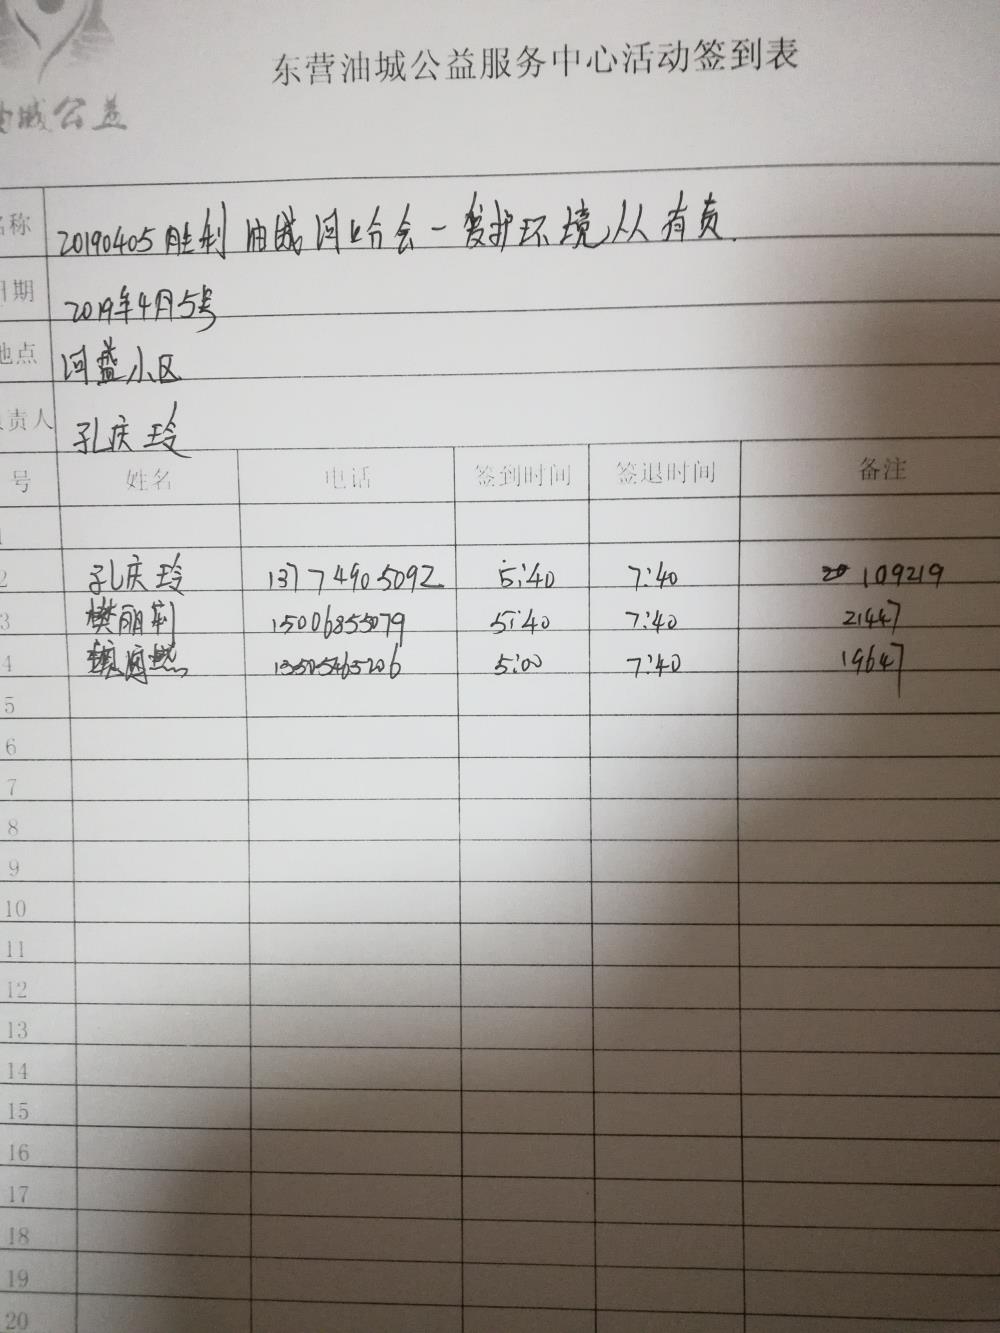 油城公益
东营油城公益服务中心活动签到表
名称 20190405胜利油城河口分会一爱护环境从有责.
日期 2019年4月5号
地点 河盛小区
负责人 孔庆玲
号 姓名 电话 签到时间 签退时间 备注
1
2 孔庆玲 13774905092 5:40 7:40 109219
3 樊丽莉 15006855079 5:40 7:40 21447
4 13505465206 5:00 7:40 19647
5
6
7
8
9
10
11
12
13
14
15
16
17
18
19
20